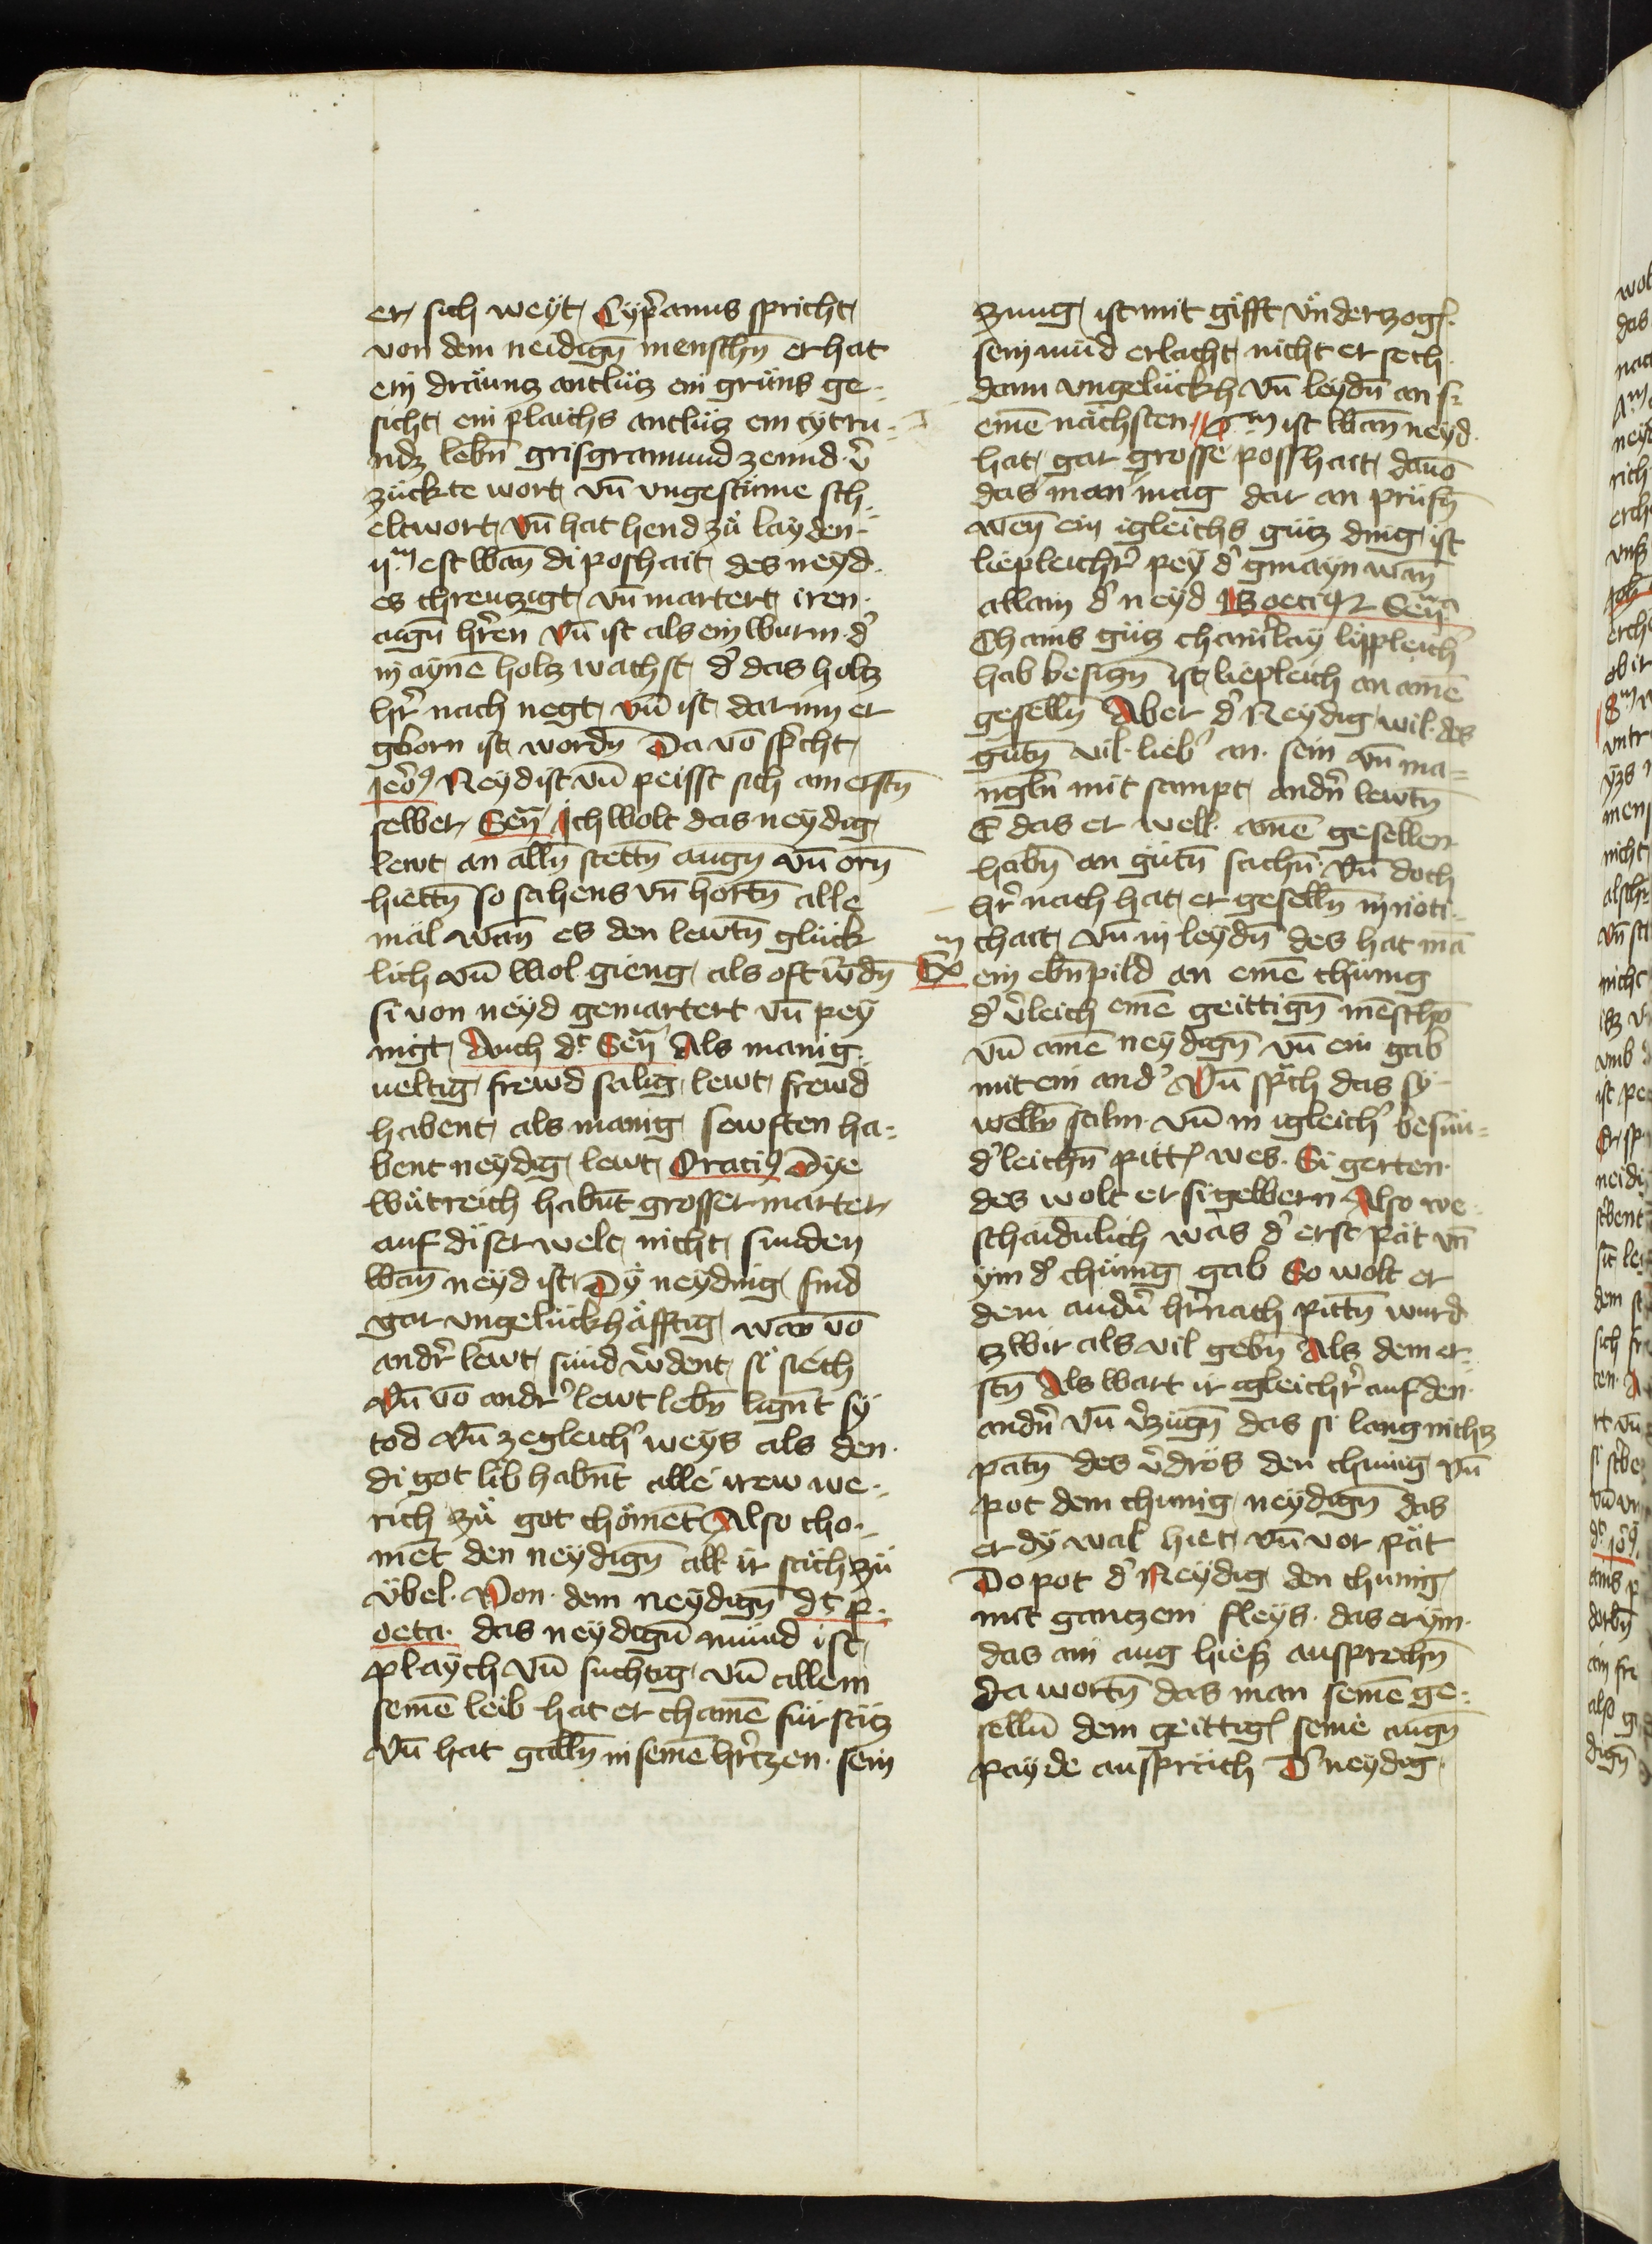 er sich weyt Cyp̄anus spricht
von dem neidign̄ menschn̄ er hat
ein dräunz antlüz ein gräns ge-
sicht ein plaichs antlüz ein cytru-
ndz lebn̄ grisgramund zennd v̄
zuckte wort vn̄ vngestüme sch-
eltwort vn̄ hat hend zů layden
ijm est wan̄ di poshait des neyd
es chreuzigt vn̄ martert iren
aign̄ hr̄en vn̄ ist als ein wurm d'
in aynē holz wachst d' das holz
hr̄ nach negt vn̄ ist darinn er
gborn ist wordn̄ Da vō sp̄cht
jeō9 Neyd ist vn̄ peisst sich am erstn̄
selber Sen̄ Ich wolt das neydig
lewt an alln̄ stettn̄ augn̄ vn̄ orn̄
hiettn̄ so sahens vn̄ hortn̄ alle
mäl wan̄ es den lewtn̄ glück
lich vn̄ wol gieng als oft w̄dn̄
si von neyd gemartert vn̄ pey
nigt Auch dt Sen̄ Als manig
ueltig frewd sälig lewt frewd
habent als manig sewften ha-
bent neydig lewt Orati9 Dye
wütreich habn̄t grosser marter
auf diser welt nicht funden
wan̄ neyd ist Dy neyding sind
gar vngelückhäfftig wan̄ vō
andr̄ lewt sünd w̄dent si siech
Vn̄ vō andr' lewt lebn̄ lign̄t sy
tod Vn̄ zegleich' weys als den
di got lib habn̄t alle irew we-
rich zů got chömēt Also cho-
mēt den neydign̄ all ir sach zü
übel Von dem neydign̄ dt p-
oeta das neydign̄ mund ist
playch vn̄ suchtig vn̄ allem
seinē leib hat er chainē für sätz
Vn̄ hat galln̄ in seinē hr̄czen sein
zung ist mit gifft vnderzoḡ
sein mūd erlacht nicht er sech
dann vngelückh vn̄ leydn̄ an s-
einē nächsten //m ist wan̄ neyd
hat gar grosse posshait dauō
das man mag dar an prüfn̄
wen̄ ein igleichs gütz ding ist
liepleichr̄ pey d' gmayn wan̄
allain d' neyd Boeti9 Sen̄
Chains gütz chain'lay lippleich'
hab besign̄ ist liepleich an ainē
geselln̄ Aber d' Neydig wil des
gütn̄ vil lieb' an sein vn̄ ma-
ngln̄ mit sampt andn̄ lewtn̄
E das er well ainē gesellen
habn̄ an gütn̄ sachn̄ Vn̄ doch
hr̄ nach hat er geselln̄ in nöti-
chait vn̄ in leydn̄ des hat mā
Exm ein ebn̄pild an einē chünig
d' v̄leich einē geittign̄ mēschn̄
vn̄ ainē neydign̄ vn̄ ein gab
mit ein and' Vn̄ sp̄ch das sy
welln̄ stiln vn̄ in igleich' besun-
d'leichn̄ pitt wes Si gerten
des wolt er si gewern Also we-
schaidnlich was d' erst pät vn̄
ym d' chünig gab So wolt er
dem andn̄ hr̄nach pittn̄ wurd
zwir als vil gebn̄ Als dem er-
stn̄ Als wart ir igleichr̄ auf den
andn̄ vn̄ v̄zugn̄ das si lang nichz
patn̄ des v̄drös den chunig vn̄
pot dem chunig neydign̄ das
er dy wal hiet vn̄ vor pät
Do pot d' Neydig den chunig
mit ganczem fleys das er ym
das ain aug hiess ausprechn̄
Da wortn̄ das man seinē ge-
selln̄ dem geittiḡ seine augn̄
payde ausprach D' neydig